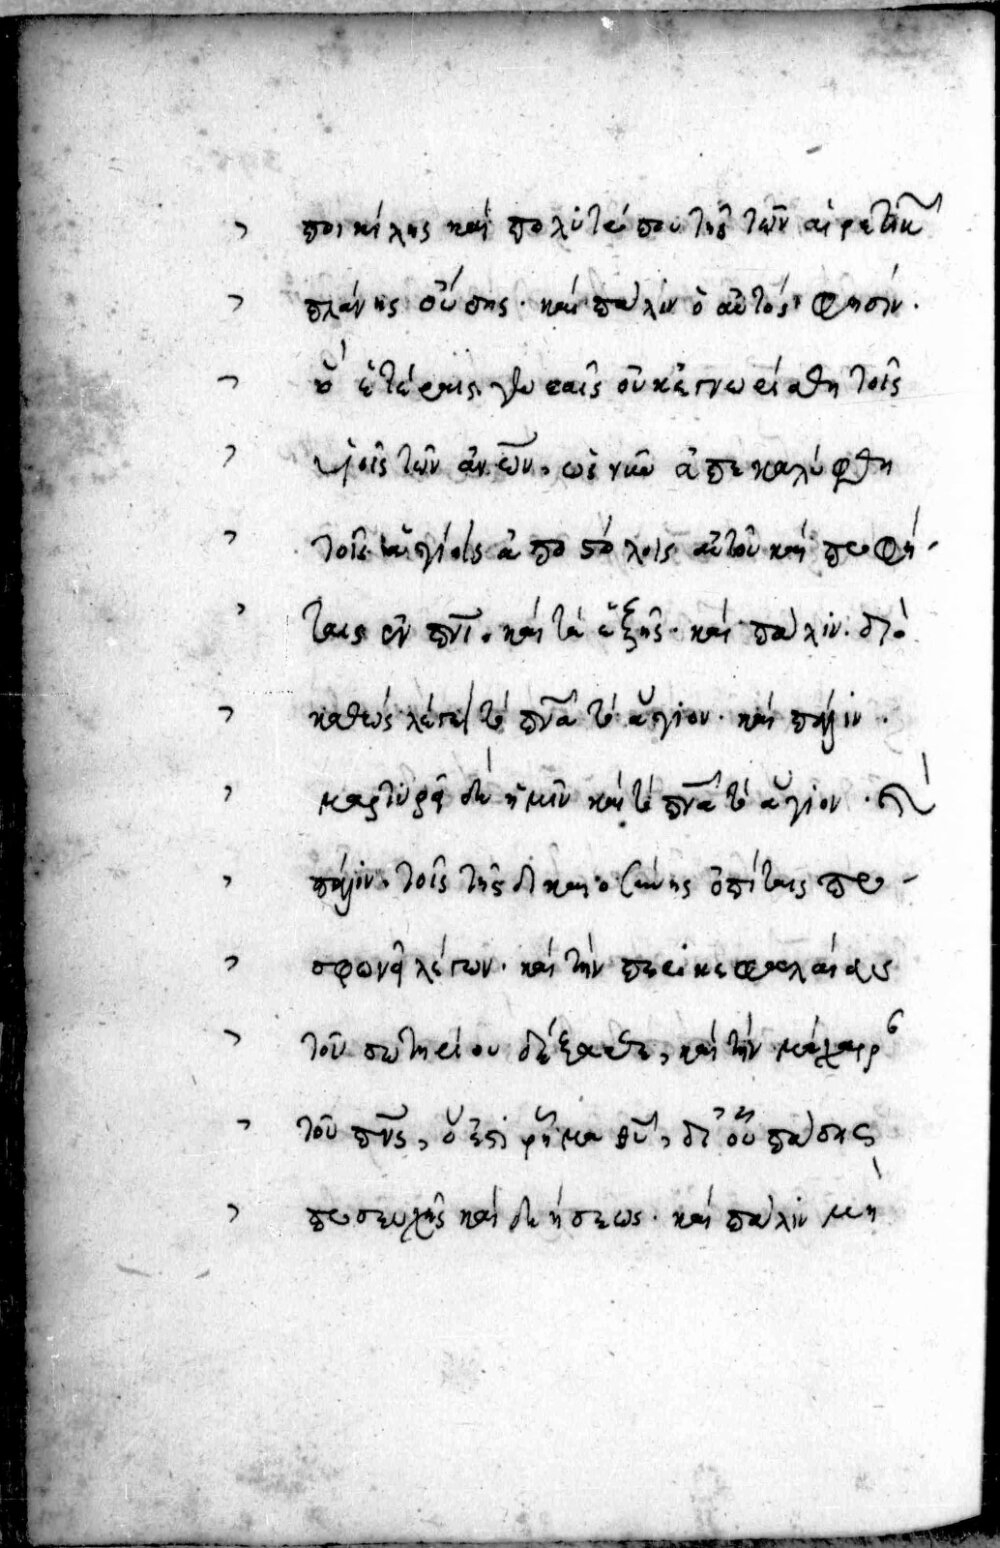 ποικίλης καὶ πολυτρόπου τῆς τῶν αἱρετικ
πλάνης οὔσης· καὶ πάλιν ὁ αὐτός φησίν·
ὃ ἑτέραις γενεαῖς οὐκ ἐγνωρίσθη τοῖς
υἱοῖς τῶν ἀνων, ὡς νῦν ἀπεκαλύφθη
τοῖς ἁγίοις ἀποστόλοις αὐτοῦ καὶ προφή-
ταις ἐν πνι. καὶ τὰ ἑξῆς· καὶ πάλιν· διὸ
καθὼς λέγει τὸ πνα τὸ ἅγιον· καὶ πάλιν·
μαρτυρεῖ δὲ ἡμῖν καὶ τὸ πνα τὸ ἅγιον· καὶ
πάλιν· τοῖς τῆς δικαιοσύνης ὁπλίταις προ-
σφωνεῖ λέγων· καὶ τὴν περικεφαλαίαν
τοῦ σωτηρίου δέξασθε, καὶ τὴν μάχαιρ
τοῦ πνς, ὅ ἐστι ῥῆμα θυ, δι' οὗ πάσης
προσευχῆς καὶ δεήσεως· καὶ πάλιν μὴ